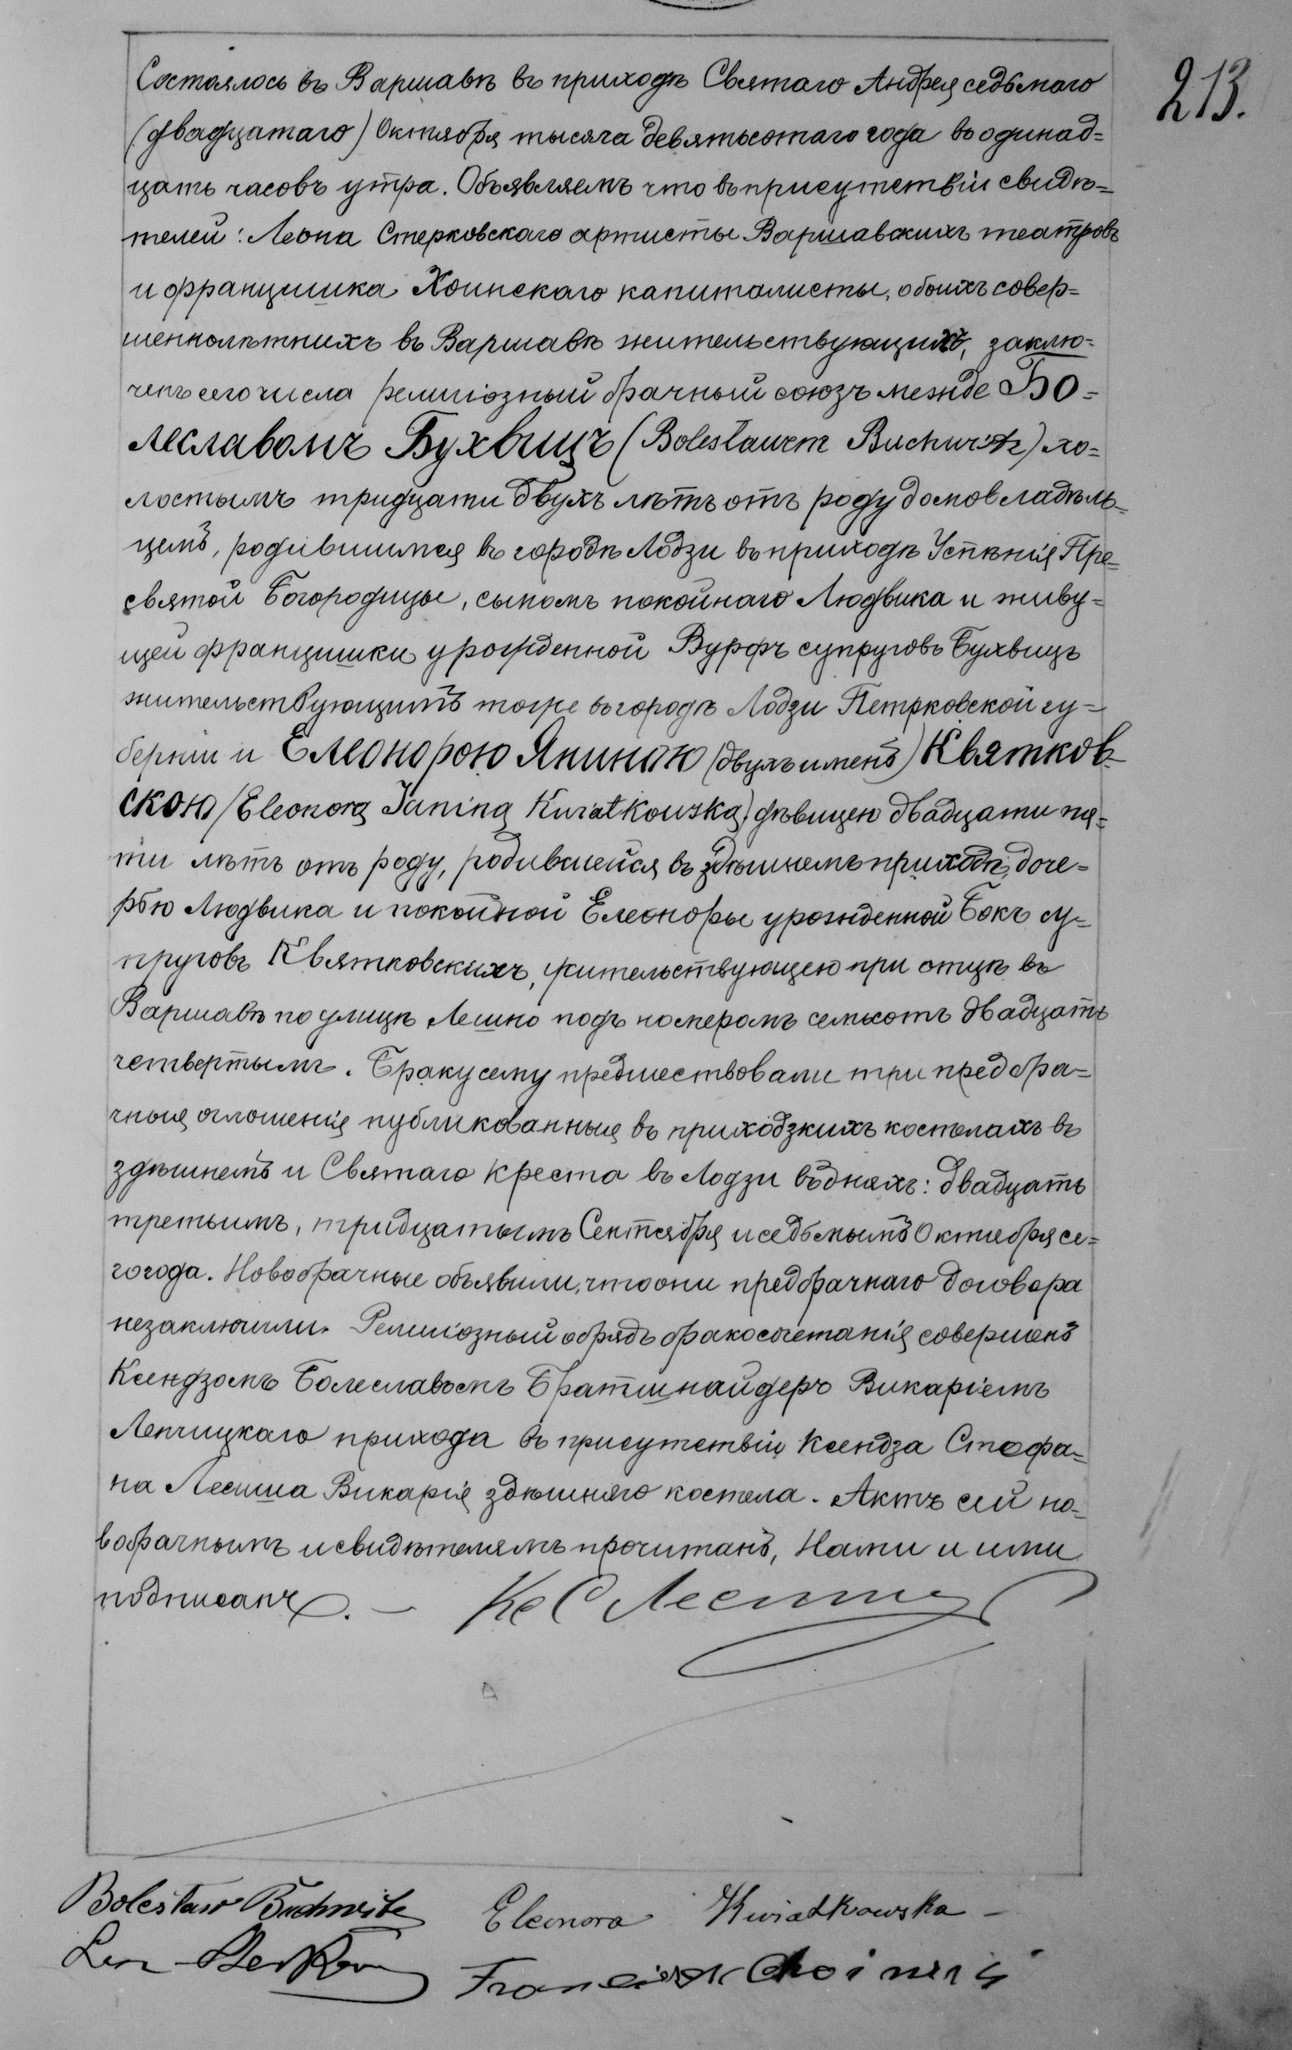 213.
Состоялось въ Варшавѣ въ приходѣ Святаго Андрея седьмаго
(двадцатаго) Октября тысяча девятьсотаго года въ одинад=
цать часовъ утра. Объявляемъ что въ присутствіи свидѣ=
телей: Леона Стерковскаго артисты Варшавскихъ театровъ
и францишка Хоинскаго капиталисты, обоихъ совер=
шеннолѣтнихъ въ Варшавѣ жительствующихъ, заклю=
ченъ сего числа религіозный брачный союзъ между Бо=
леславомъ Бухвицъ (Bolesławem Buchwitz) хо=
лостымъ тридцати двухъ лѣтъ отъ роду домовладѣль=
цемъ, родившимся въ городѣ Лодзи въ приходѣ Успѣнія Пре=
святой Богородицы, сыномъ покойнаго Людвика и живу=
щей францишки урожденной Вурфъ супруговъ Бухвицъ
жительствующимъ тоже въ городѣ Лодзи Петрковской гу=
берніи и Елеонорою Яниною (двухъ именъ) Квятков=
скою (Eleonorą Janiną Kwiatkowską) дѣвицею двадцати пя=
ти лѣтъ отъ роду, родившейся въ здѣшнемъ приходѣ, доче=
рью Людвика и покойной Елеоноры урожденной Бокъ су=
пруговъ Квятковскихъ, жительствующею при отцѣ въ
Варшавѣ по улицѣ Лешно подъ номеромъ семьсотъ двадцать
четвертымъ. Браку сему предшествовали три предбра=
чныя оглошенія публикованныя въ приходзкихъ костелахъ въ
здѣшнемъ и Святаго Креста въ Лодзи въ дняхъ: двадцать
третьимъ, тридцатымъ Сентября и седьмымъ Октября се=
го года. Новобрачные объявили, что они предбрачнаго договора
незаключили. Религіозный обрядъ бракосочетанія совершенъ
Ксендзомъ Болеславомъ Братшнайдеръ Викаріемъ
Ленчицкаго прихода въ присутствіи Ксендза Стефа=
на Лесиша Викарія здѣшняго костела. Актъ сей но=
вобрачнымъ и свидѣтелямъ прочитанъ, Нами и ими
подписанъ. — Кс С Лесишъ
Bolesław Buchwitz Eleonora Kwiatkowska
Leon Franciszek Choiński